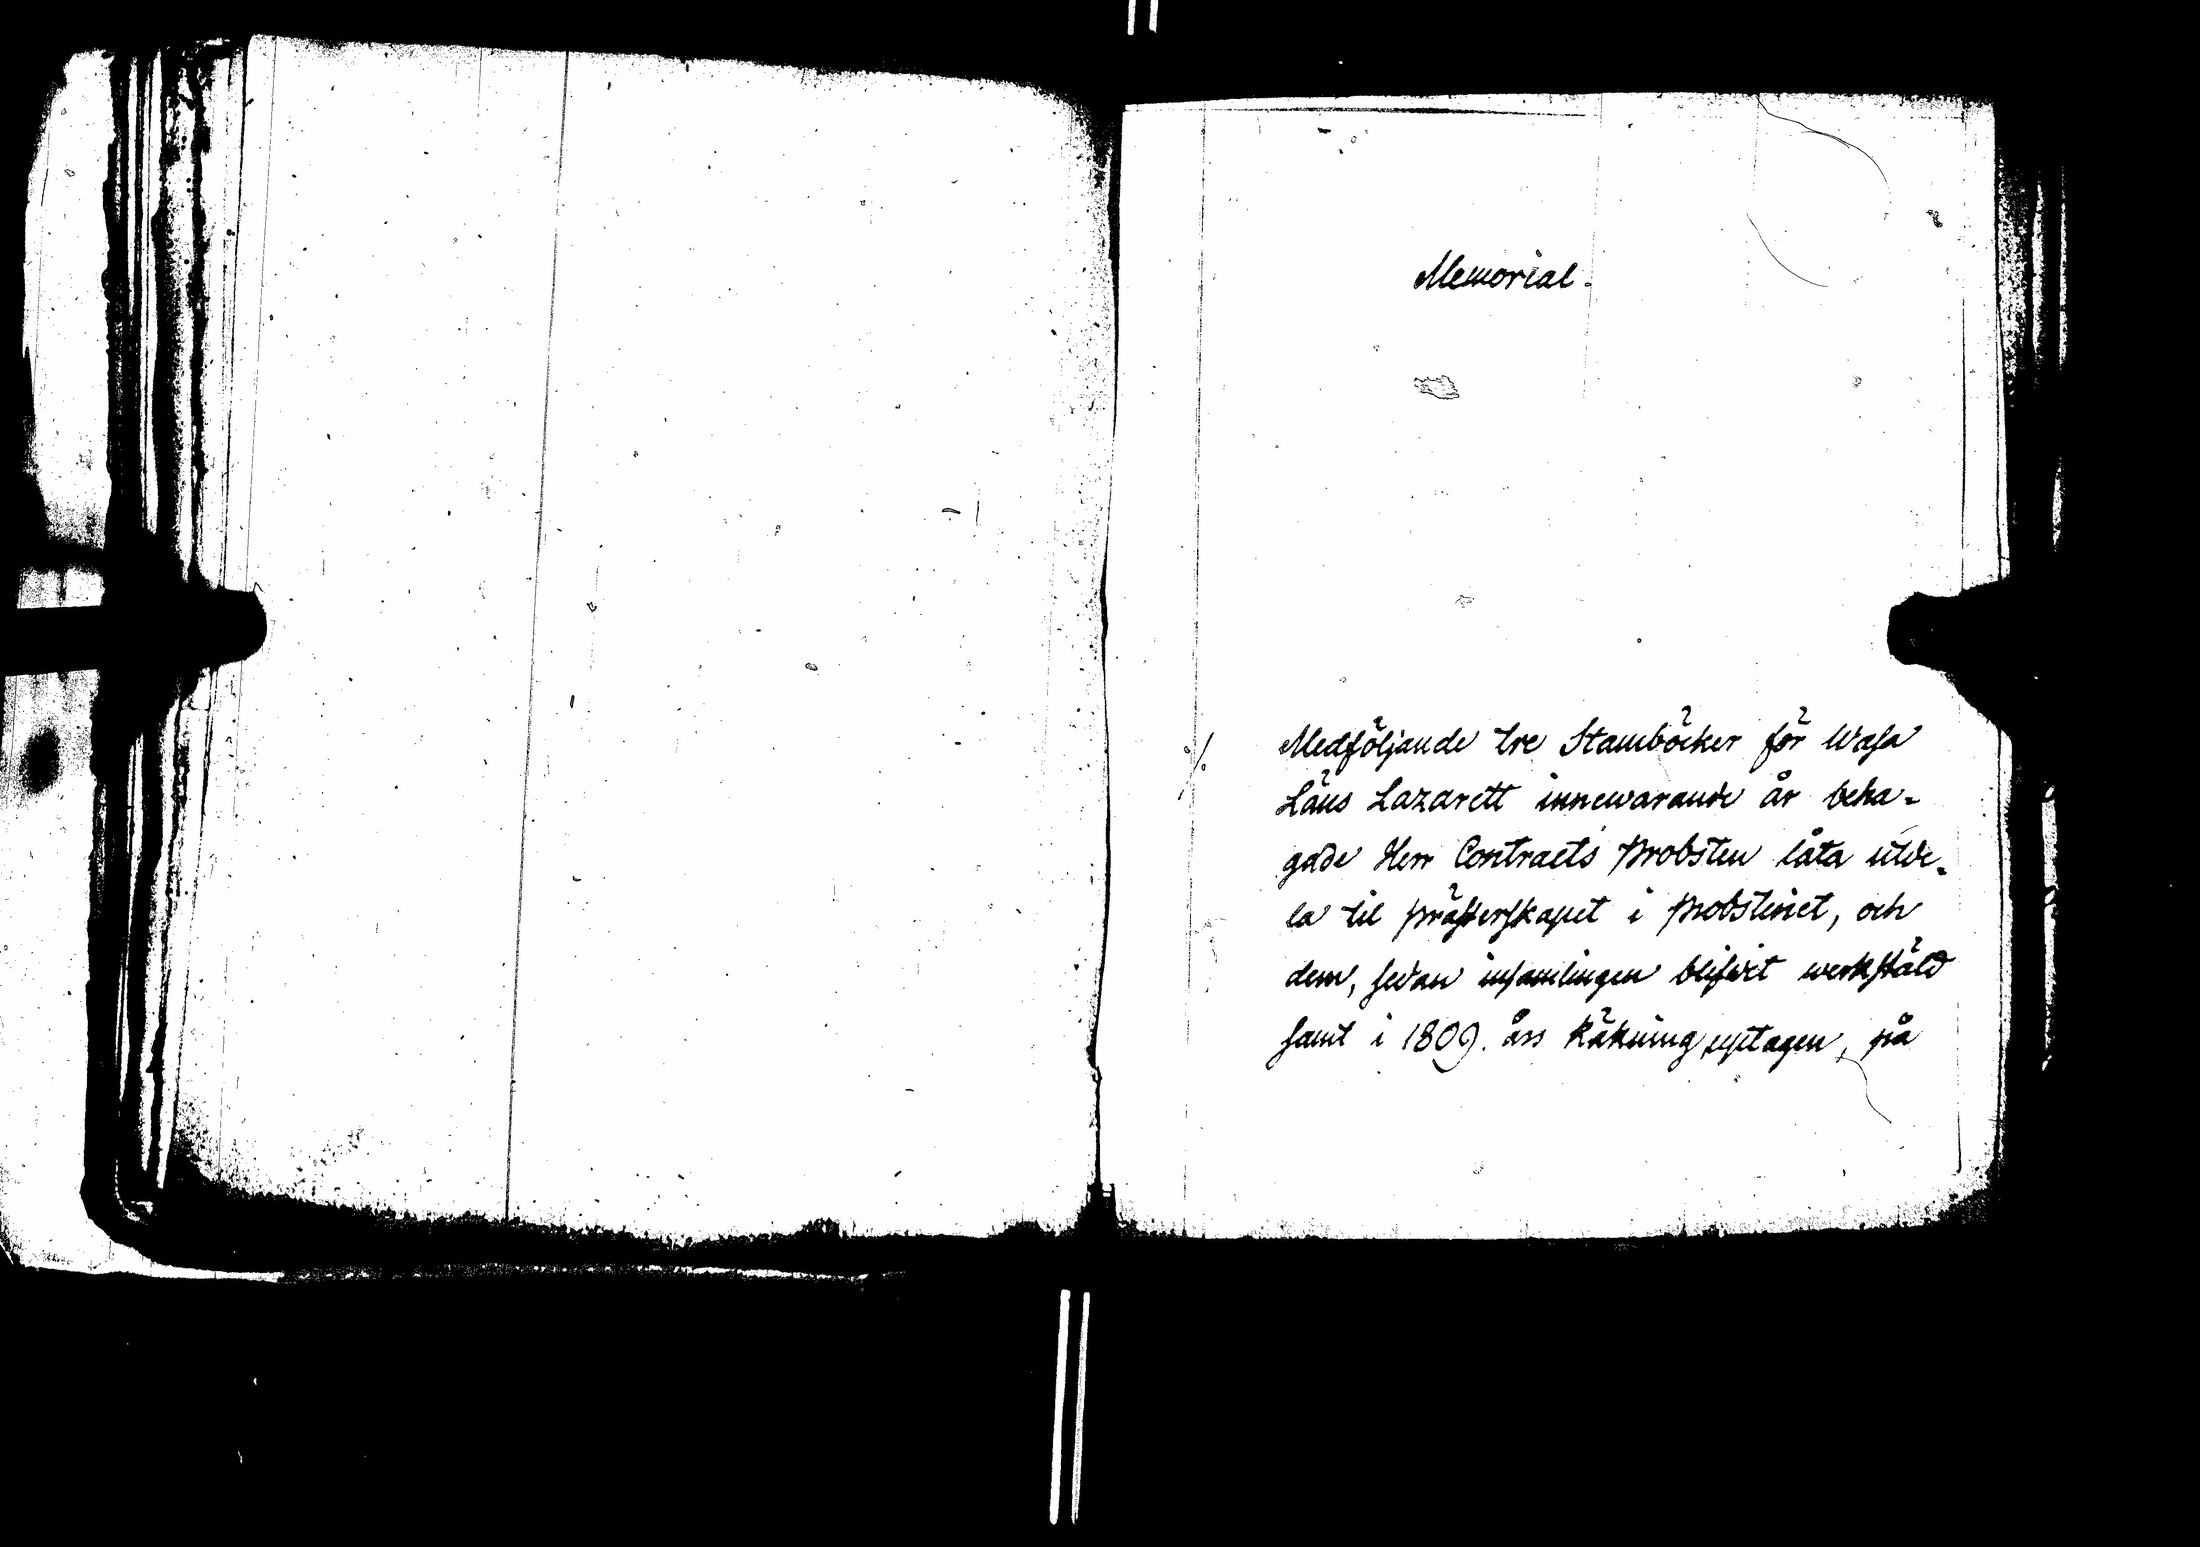 Memorial.
./. Medföljande tre Stamböcker för Wasa
Läns Lazarett innewarande år beha-
gade Herr Contracts Probsten låta utde-
la til Prästerskapet i Probsteriet, och
dem, sedan insamlingen blifwit werkstäld
samt i 1809. års Räkning uptagen, på